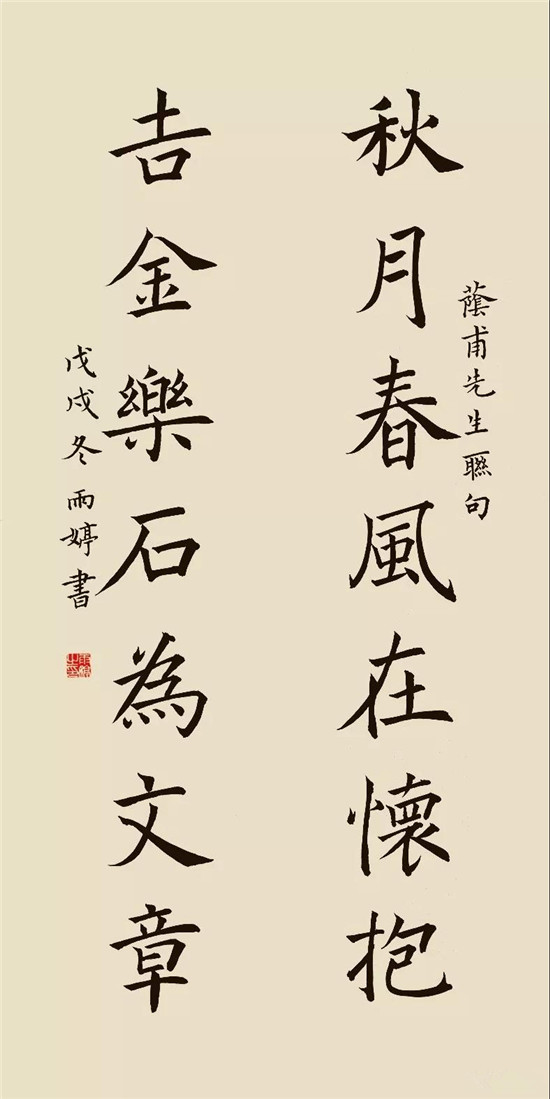 秋月春風在懷抱
蔭甫先生聯句
吉金樂石為文章
戊戌冬雨婷書